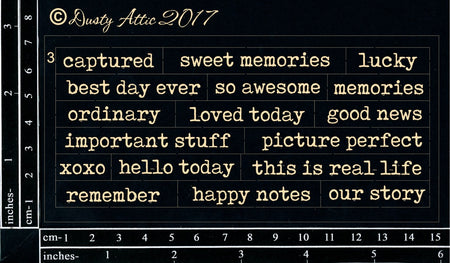 © Dusty Attic 2017
3
captured sweet memories lucky
best day ever so awesome memories
ordinary loved today good news
important stuff picture perfect
xoxo hello today this is real life
remember happy notes our story
8
7
6
5
4
3
2
1
cm-
2
1
inches-
cm-1 2 3 4 5 6 7 8 9 10 11 12 13 14 15
inches- 1 2 3 4 5 6